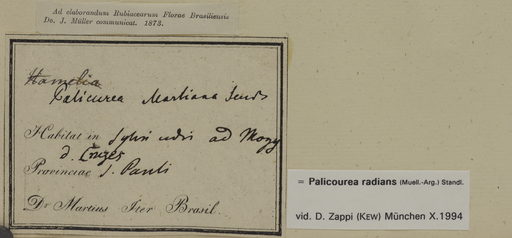 Ad elaborandum Rubiacearum Florae Brasiliensis
Do. J. Müller communicat. 1873.
Hamelia
Palicurea Martiana
Habitat in Sylvis udis ad Mogy
d. Cruzes
Provinciae S. Pauli
Dr Martius Iter Brasil.
= Palicourea radians (Muell.-Arg.) Standl.
vid. D. Zappi (KEW) München X.1994